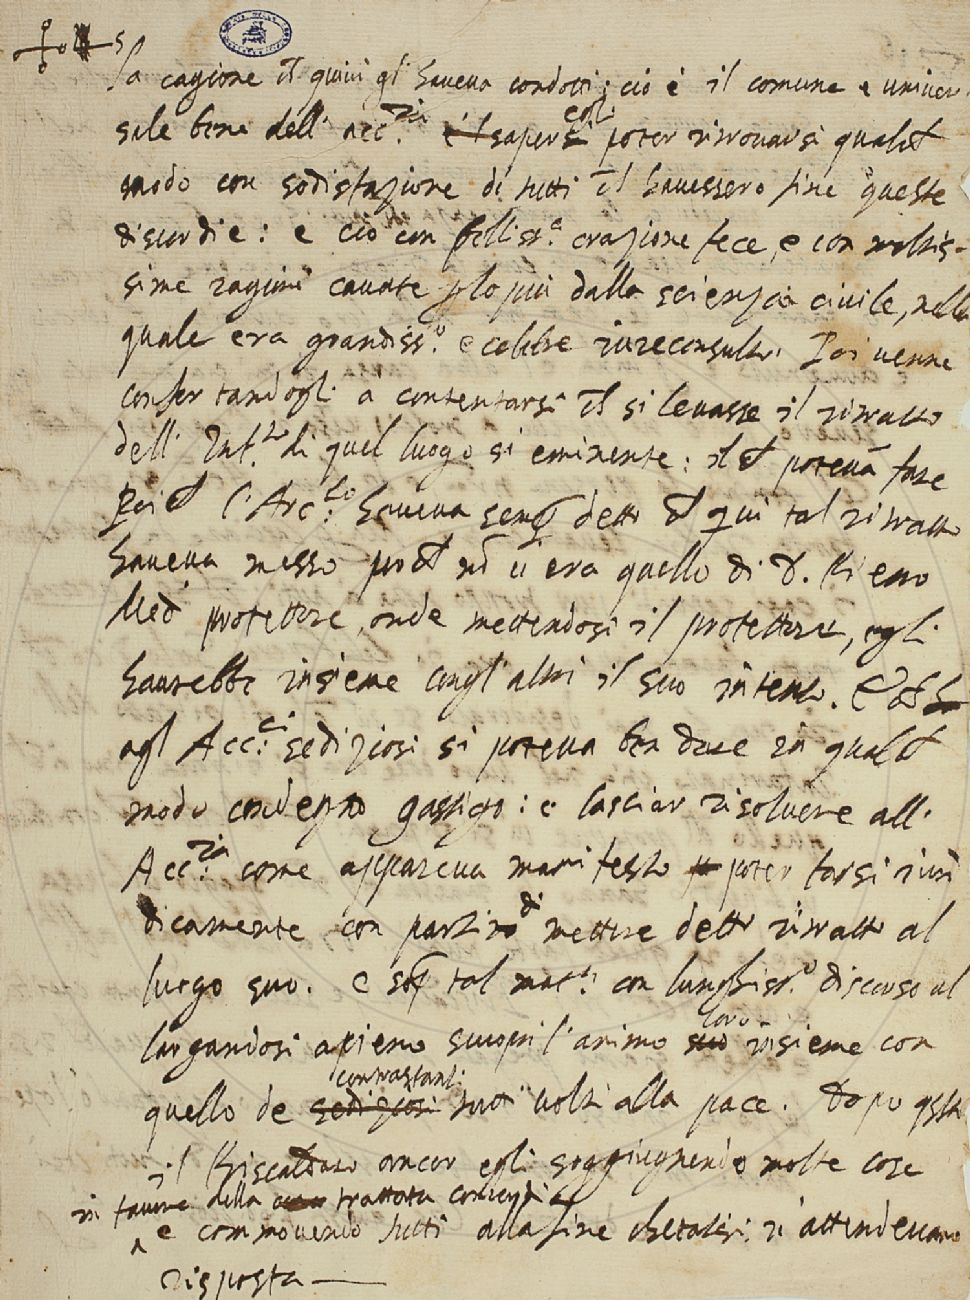 la cagione che quivi gli haveva condotti; ciò è il comune e univer-
sale bene dell' Acc.ria e 'l sapersi egli poter ritrovarsi qualche
modo con sodisfazione di tutti che havessero fine queste
discordie: e ciò con belliss.a orazione fece, e con moltis-
sime ragioni cavate p lo più dalla scienzia civile, nella
quale era grandiss.o e celebre iureconsulto. Poi venne
confortandogli a contentarsi che si levasse il ritratto
dell' Inf.to di quel luogo si eminente: il che potevã fare
Poi che l'Arc.lo haveva semp detto che qui tal ritratto
haveva messo pche nõ vi era quello di D. Piero
Med protettore, onde mettendosi il protettore, egli
haurebbe insieme congl'altri il suo intento. E
agl' Acc.ci sediziosi si poteva ben dare in qualche
modo condegno gastigo: e lasciar risolvere all'
Acc.ria come appareva manifesto poter farsi iuri
dicamente con partito di mettere detto ritratto al
luogo suo. e sop tal mat.a con lunghiss.o discorso al
largandosi apieno scuoprì l'animo suo loro insieme con
quello de sediziosi contrastanti tutti volti alla pace. Dopo qsto
il Riscaldato ancor egli soggiugnendo molte cose
in favore della trattata concordia
e commovendo tutti alla fine chetatisi si attendevano
risposta